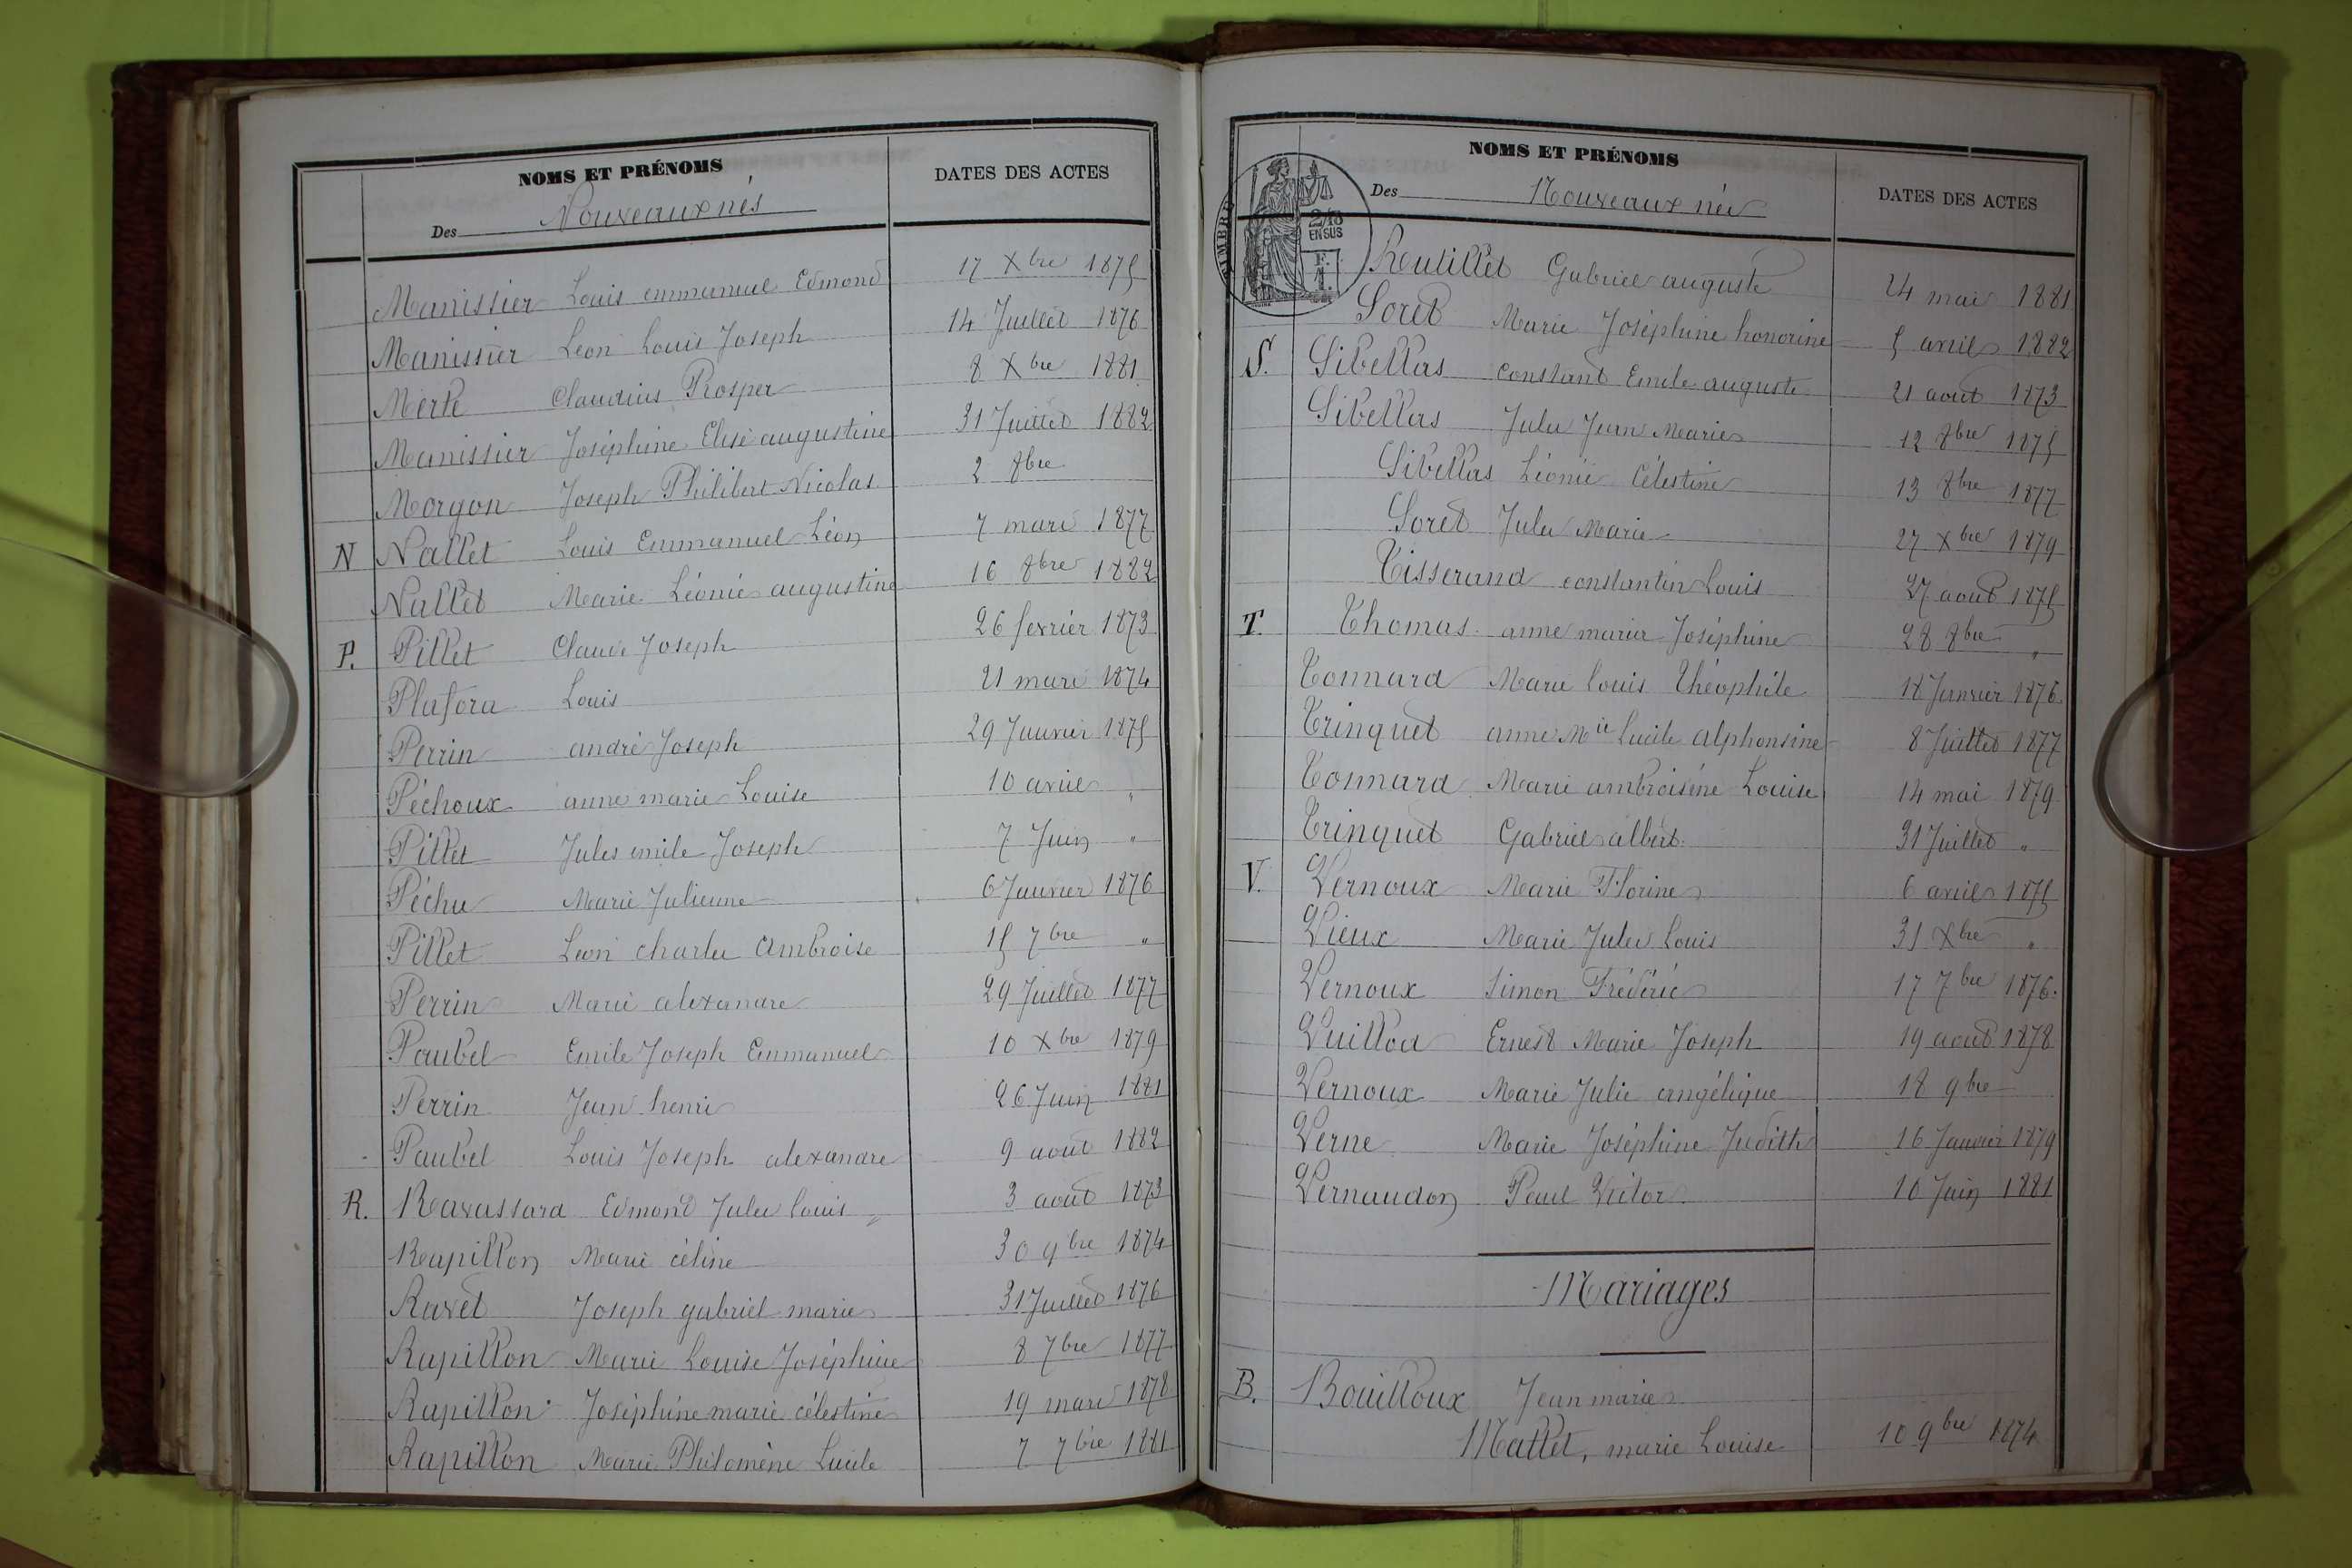 NOMS ET PRÉNOMS
DATES DES ACTES
Des Nouveaux nés
Manissier Louis emmanuel Edmond 17 Xbre 1875
Manissier Léon Louis Joseph 14 Juillet 1876
Merle Claudius Prosper 8 Xbre 1881
Manissier Joséphine Elise augustine 31 Juillet 1882
Morgon Joseph Philibert Nicolas 2 8bre
N Nallet Louis Emmanuel Léon 7 mars 1877
Nallet Marie Léonie augustine 16 8bre 1882
P. Pillet Claude Joseph 26 fevrier 1873
Plafora Louis 21 mars 1874
Perrin andré Joseph 29 Janvier 1875
Péchoux anne marie Louise 10 avril "
Pillet Jules emile Joseph 7 Juin "
Péchu Marie Julienne 6 Janvier 1876
Pillet Leon charles Ambroise 15 7bre "
Perrin Marie alexandre 29 Juillet 1877
Paubel Emile Joseph Emmanuel 10 Xbre 1879
Perrin Jean henri 26 Juin 1881
Paubel Louis Joseph alexandre 9 aout 1882
R. Ravassard Edmond Jules louis 3 aout 1873
Rapillon Marie céline 30 9bre 1874
Ravet Joseph gabriel marie 31 Juillet 1876
Rapillon Marie Louise Joséphine 8 7bre 1877
Rapillon Joséphine marie célestine 19 mars 1878
Rapillon Marie Philomène Lucile 7 7bre 1881
NOMS ET PRÉNOMS
DATES DES ACTES
Des Nouveaux nés
TIMBRE
2/10
EN SUS
Reutillet Gabriel auguste 24 mai 1881
Soret Marie Joséphine honorine 5 avril 1882
S. Sibellas constant Emile auguste 21 aout 1873
Sibellas Jules Jean Marie 12 8bre 1875
Sibellas Léonie Célestine 13 8bre 1877
Soret Jules Marie 27 Xbre 1879
Tisserand constantin Louis 27 aout 1875
T. Thomas anne marie Joséphine 28 8bre "
Tonnard Marie louis Théophile 18 Janvier 1876
Trinquet anne Mie Lucile alphonsine 8 Juillet 1877
Tonnard Marie ambroisine Louise 14 mai 1879
Trinquet Gabriel albert 31 Juillet "
V. Vernoux Marie Florine 6 avril 1875
Vieux Marie Jules Louis 31 Xbre "
Vernoux Simon Frédéric 17 7bre 1876.
Vuillod Ernest Marie Joseph 19 aout 1878
Vernoux Marie Julie angélique 18 9bre
Verne Marie Joséphine Judith 16 Janvier 1879
Vernaudon Paul Victor 10 Juin 1881
Mariages
B. Bouilloux Jean marie
Mallet, marie Louise 10 9bre 1874